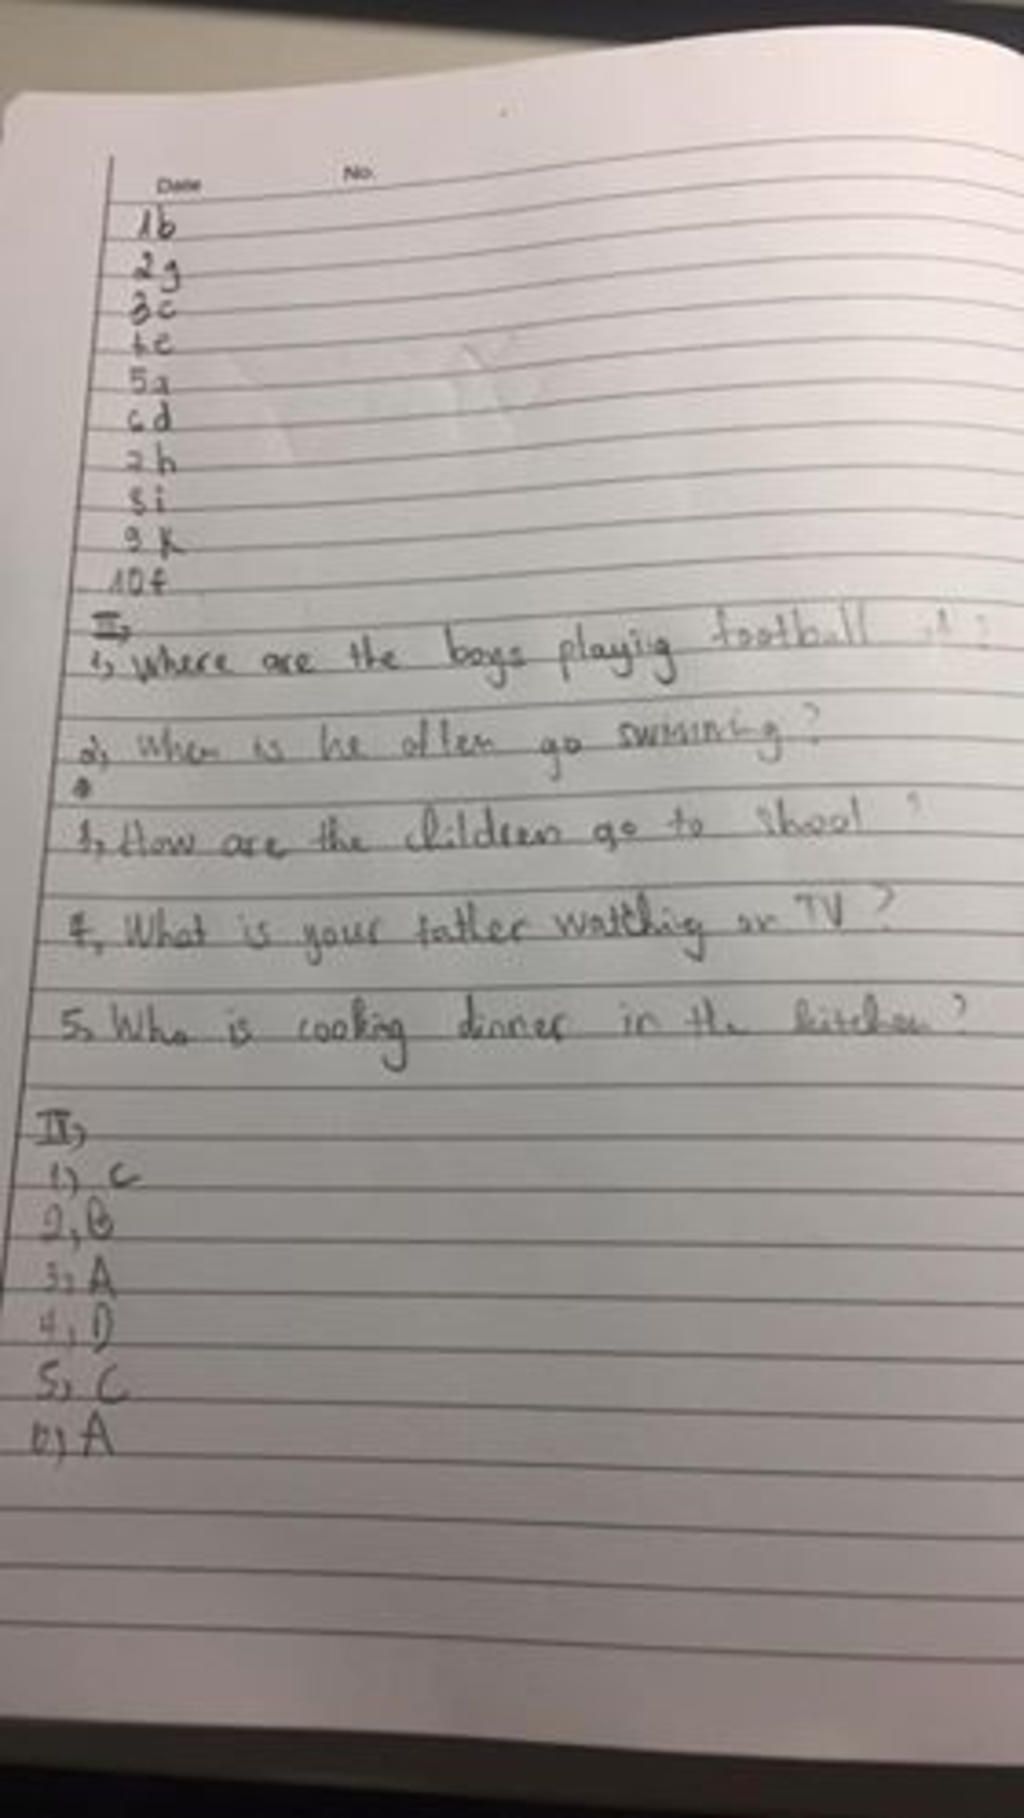 Date No.
1b
2g
3c
4e
5a
6d
7h
8i
9k
10f
II,
1, Where are the boys playing football
2, When is he often go swimming?
3, How are the children go to shool ?
4, What is your father watching on TV ?
5, Who is cooking dinner in the kitchen ?
IV,
1) C
2, B
3, A
4, D
5, C
6) A